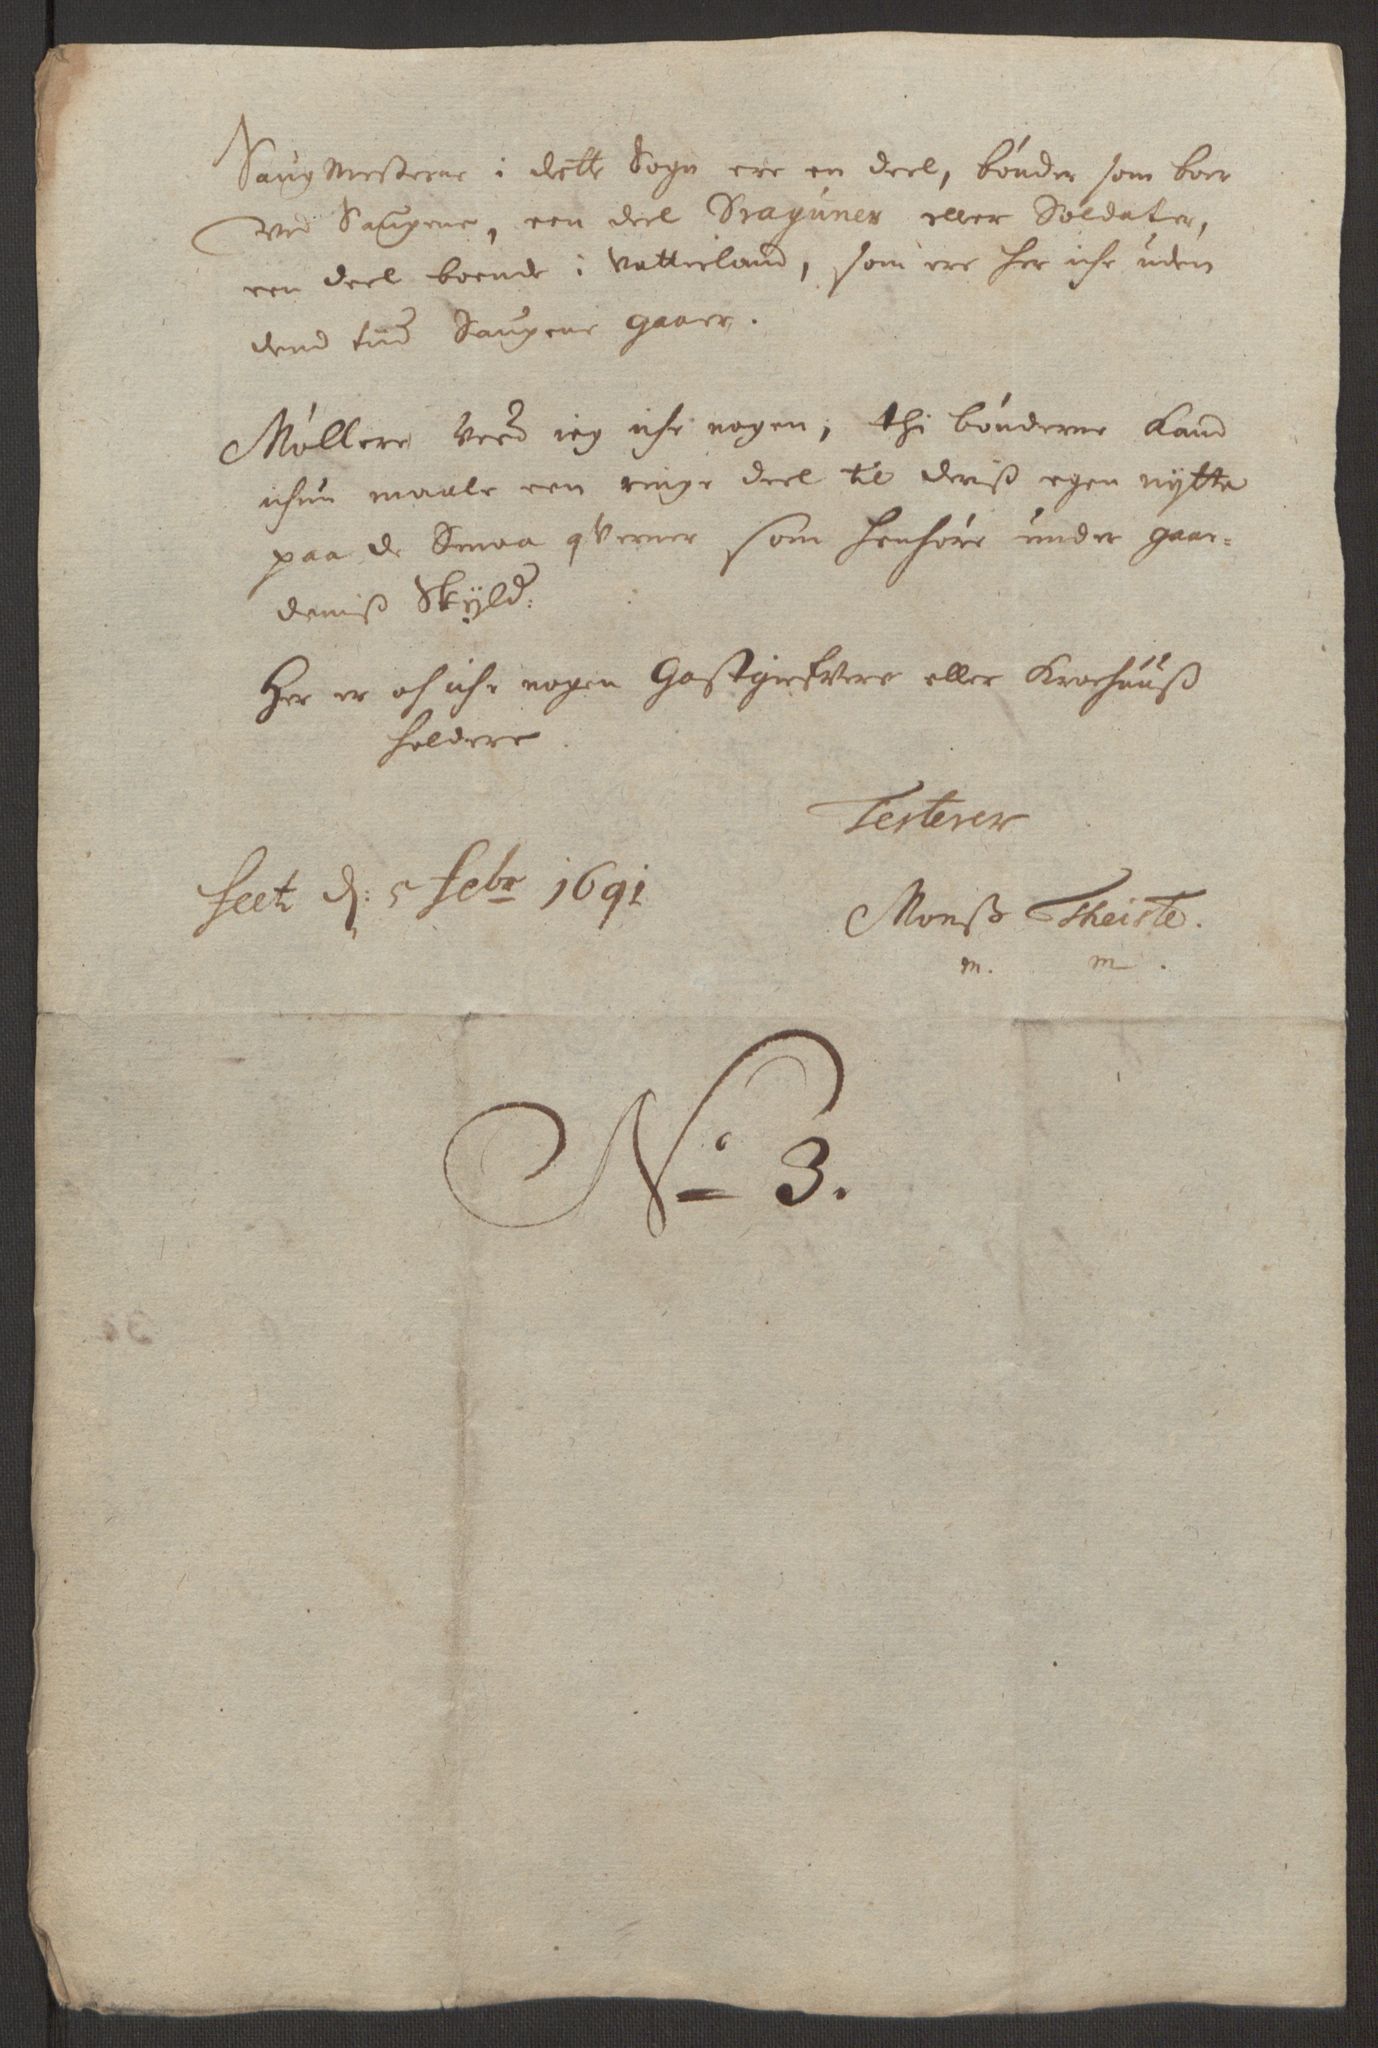 Saug Mesterne i dette Sogn ere en deel, bønder som boer
ved Saugene, een deel Dragúner eller Soldater,
een deel boende i Vatterland, som ere her iche uden
dend tiid Saugene gaaer.
Møllere veed ieg iche nogen, thi bønderne kand
ichun maale een ringe deel til deriß egen nytte
paa de Smaa qverner som henhøre under gaar=
deniß Skÿld.
Her er och iche nogen Gastgiefvere eller Kroehuuß
holdere
Testerer
feet d: 5 febr 1691
Monß Theiste.
m. m.
No 3.